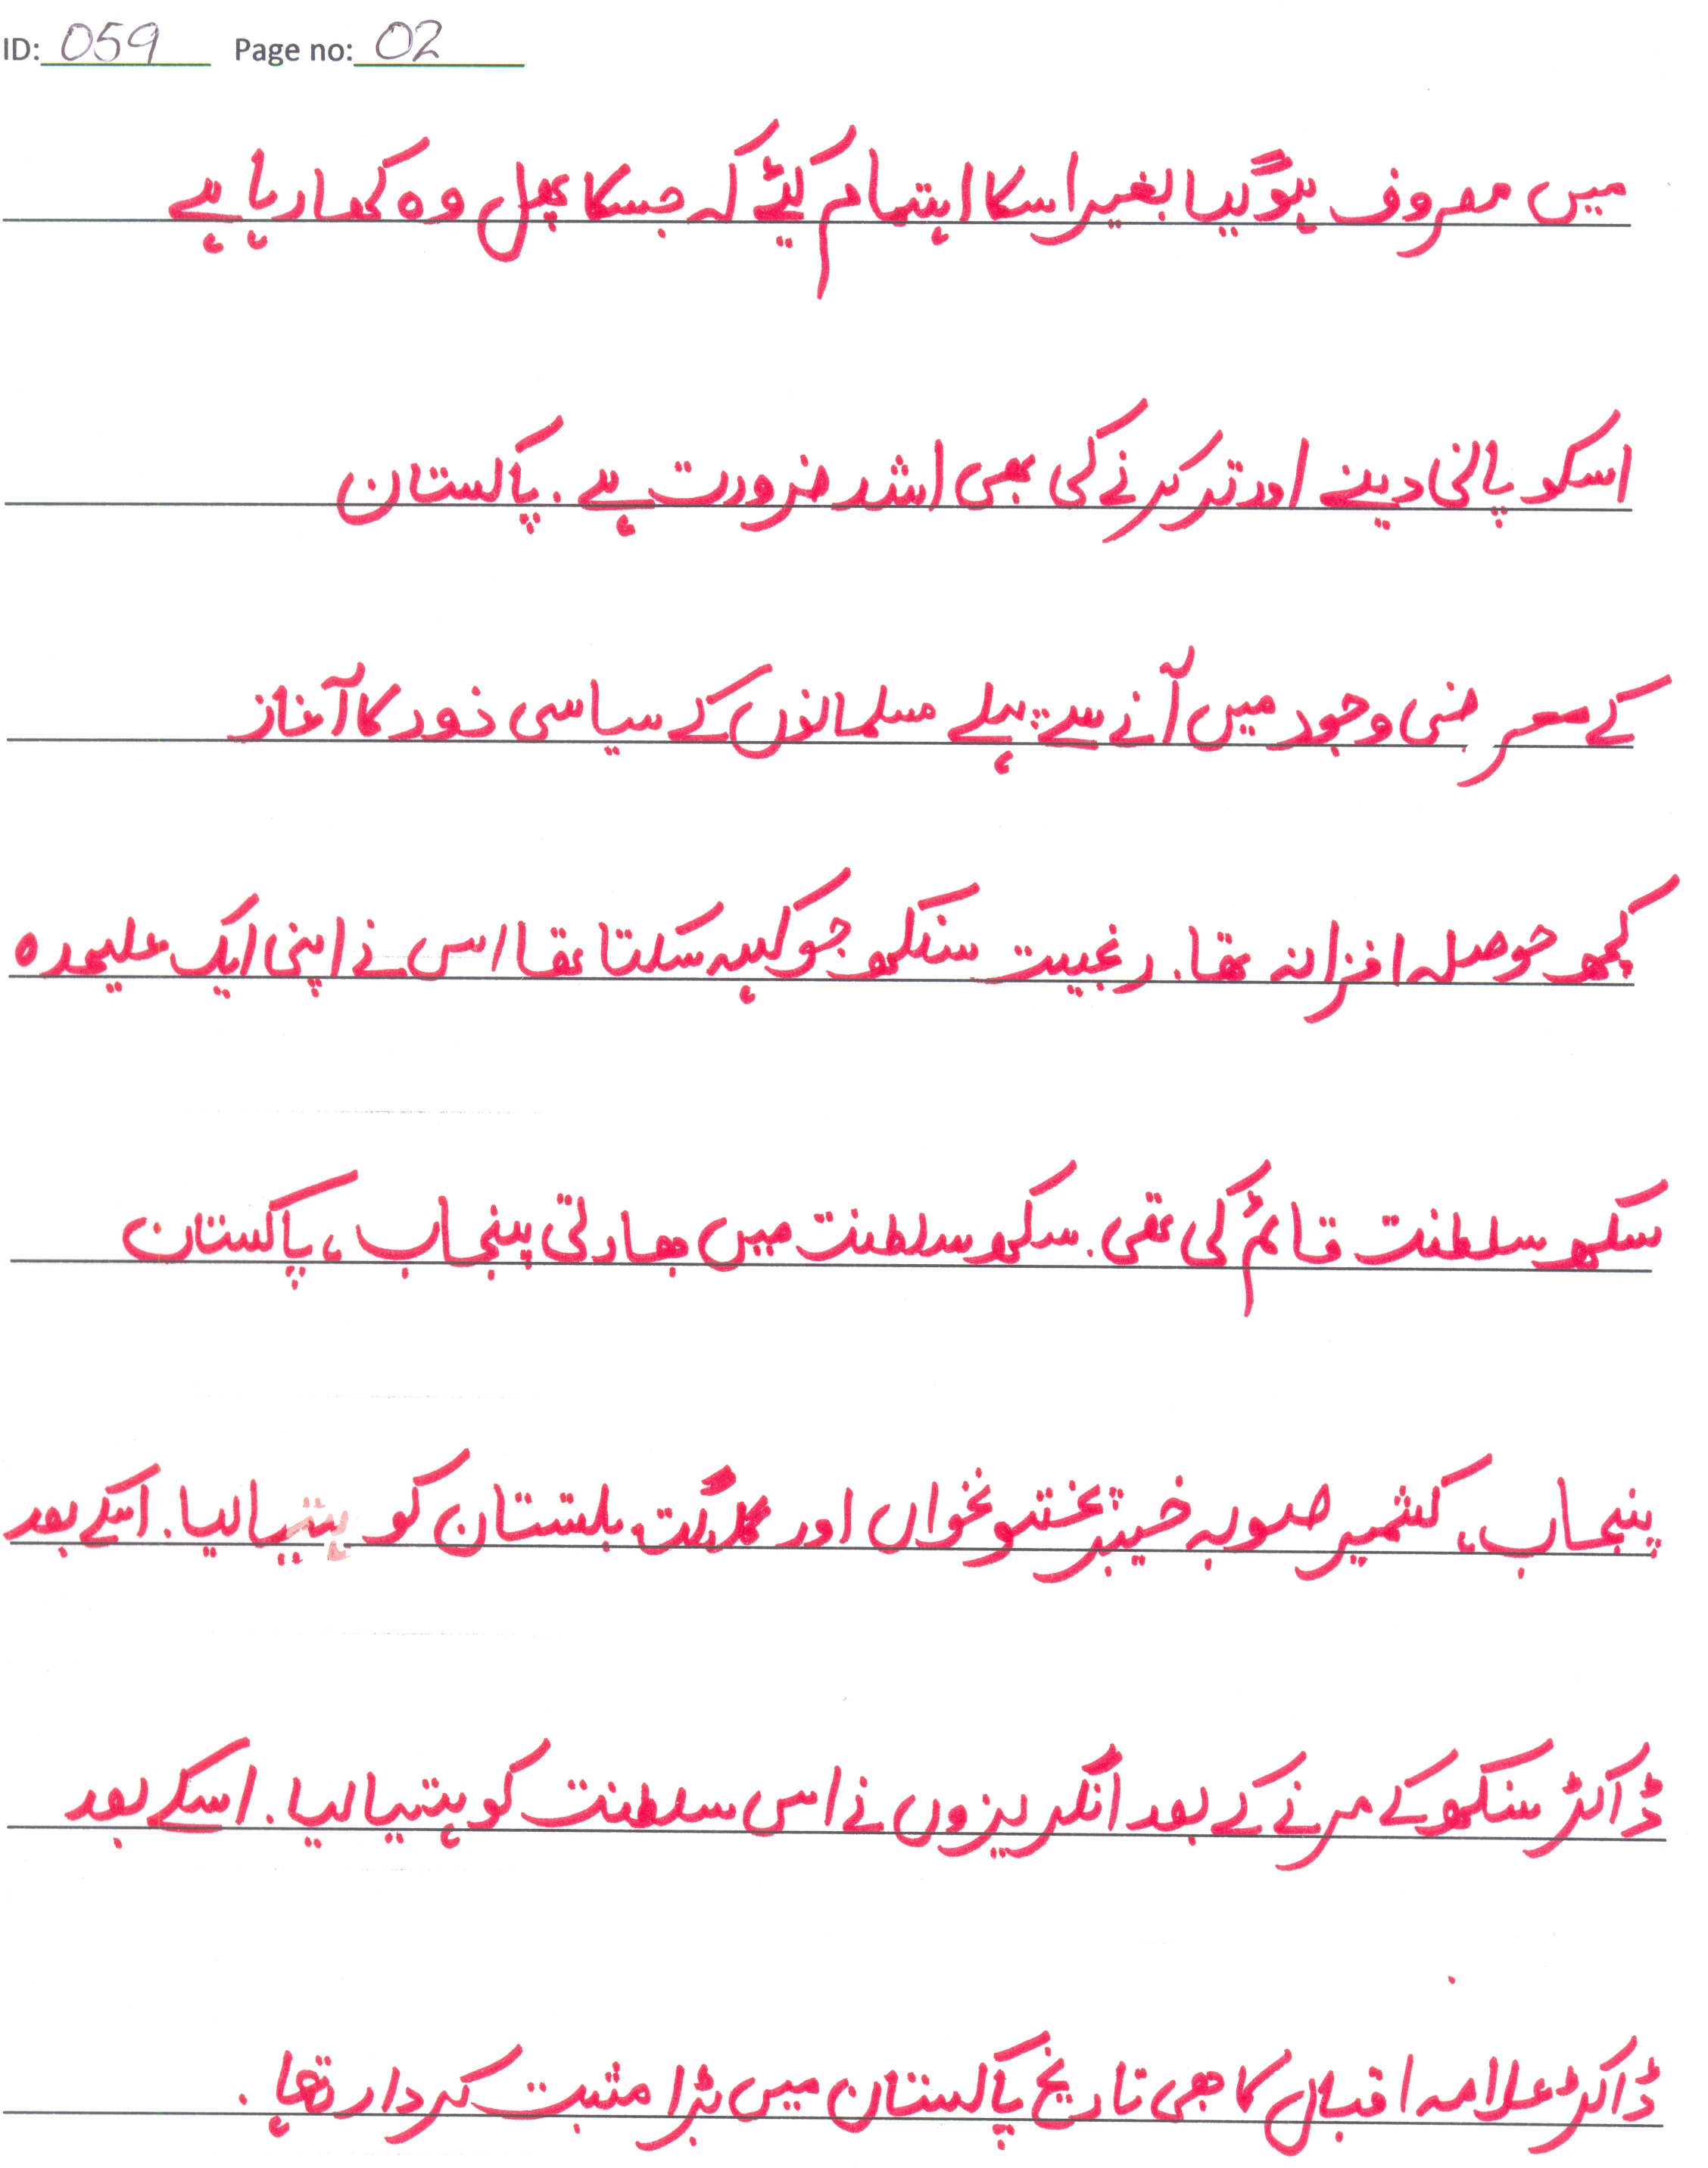 ID: 059 Page no: 02
میں مصروف ہوگیا بغیر اسکا اہتمام کیئے کہ جسکا پھل وہ کھا رہا ہے
اسکو پانی دینے اور تر کرنے کی بھی اشد ضرورت ہے. پاکستان
کے معرضی وجود میں آنے سے پہلے مسلمانوں کے سیاسی زور کا آغاز
کچھ حوصلہ افزا نہ تھا. رنجیت سنگھ جو کہہ سکتا تھا اس نے اپنی ایک علیحدہ
سکھ سلطنت قائم کی تھی. سکھ سلطنت میں بھارتی پنجاب، پاکستان
پنجاب، کشمیر صوبہ خیبر پختو نخواں اور گلگت بلتستان کو ہتیا لیا. اسکے بعد
ڈاکٹر سنگھ کے مرنے کے بعد انگریزوں نے اس سلطنت کو ہتیا لیا. اسکے بعد
ڈاکٹر علامہ اقبال کا بھی تاریخ پاکستان میں بڑا مثبت کردار تھا.